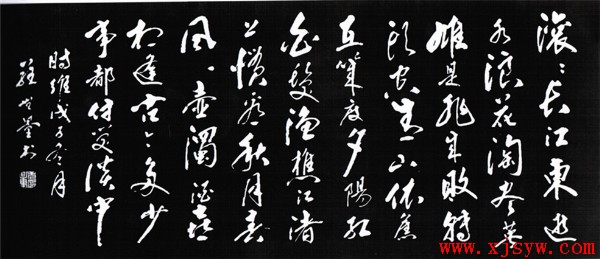 滚〻长江東逝
水浪花淘尽英
雄是非成敗轉
头空青山依舊
在幾度夕陽红
白髮渔樵江渚
上惯看秋月春
風一壶濁酒喜
相逢古今多少
事都付笑談中
時維戊子冬月
书
www.xjsyw.com